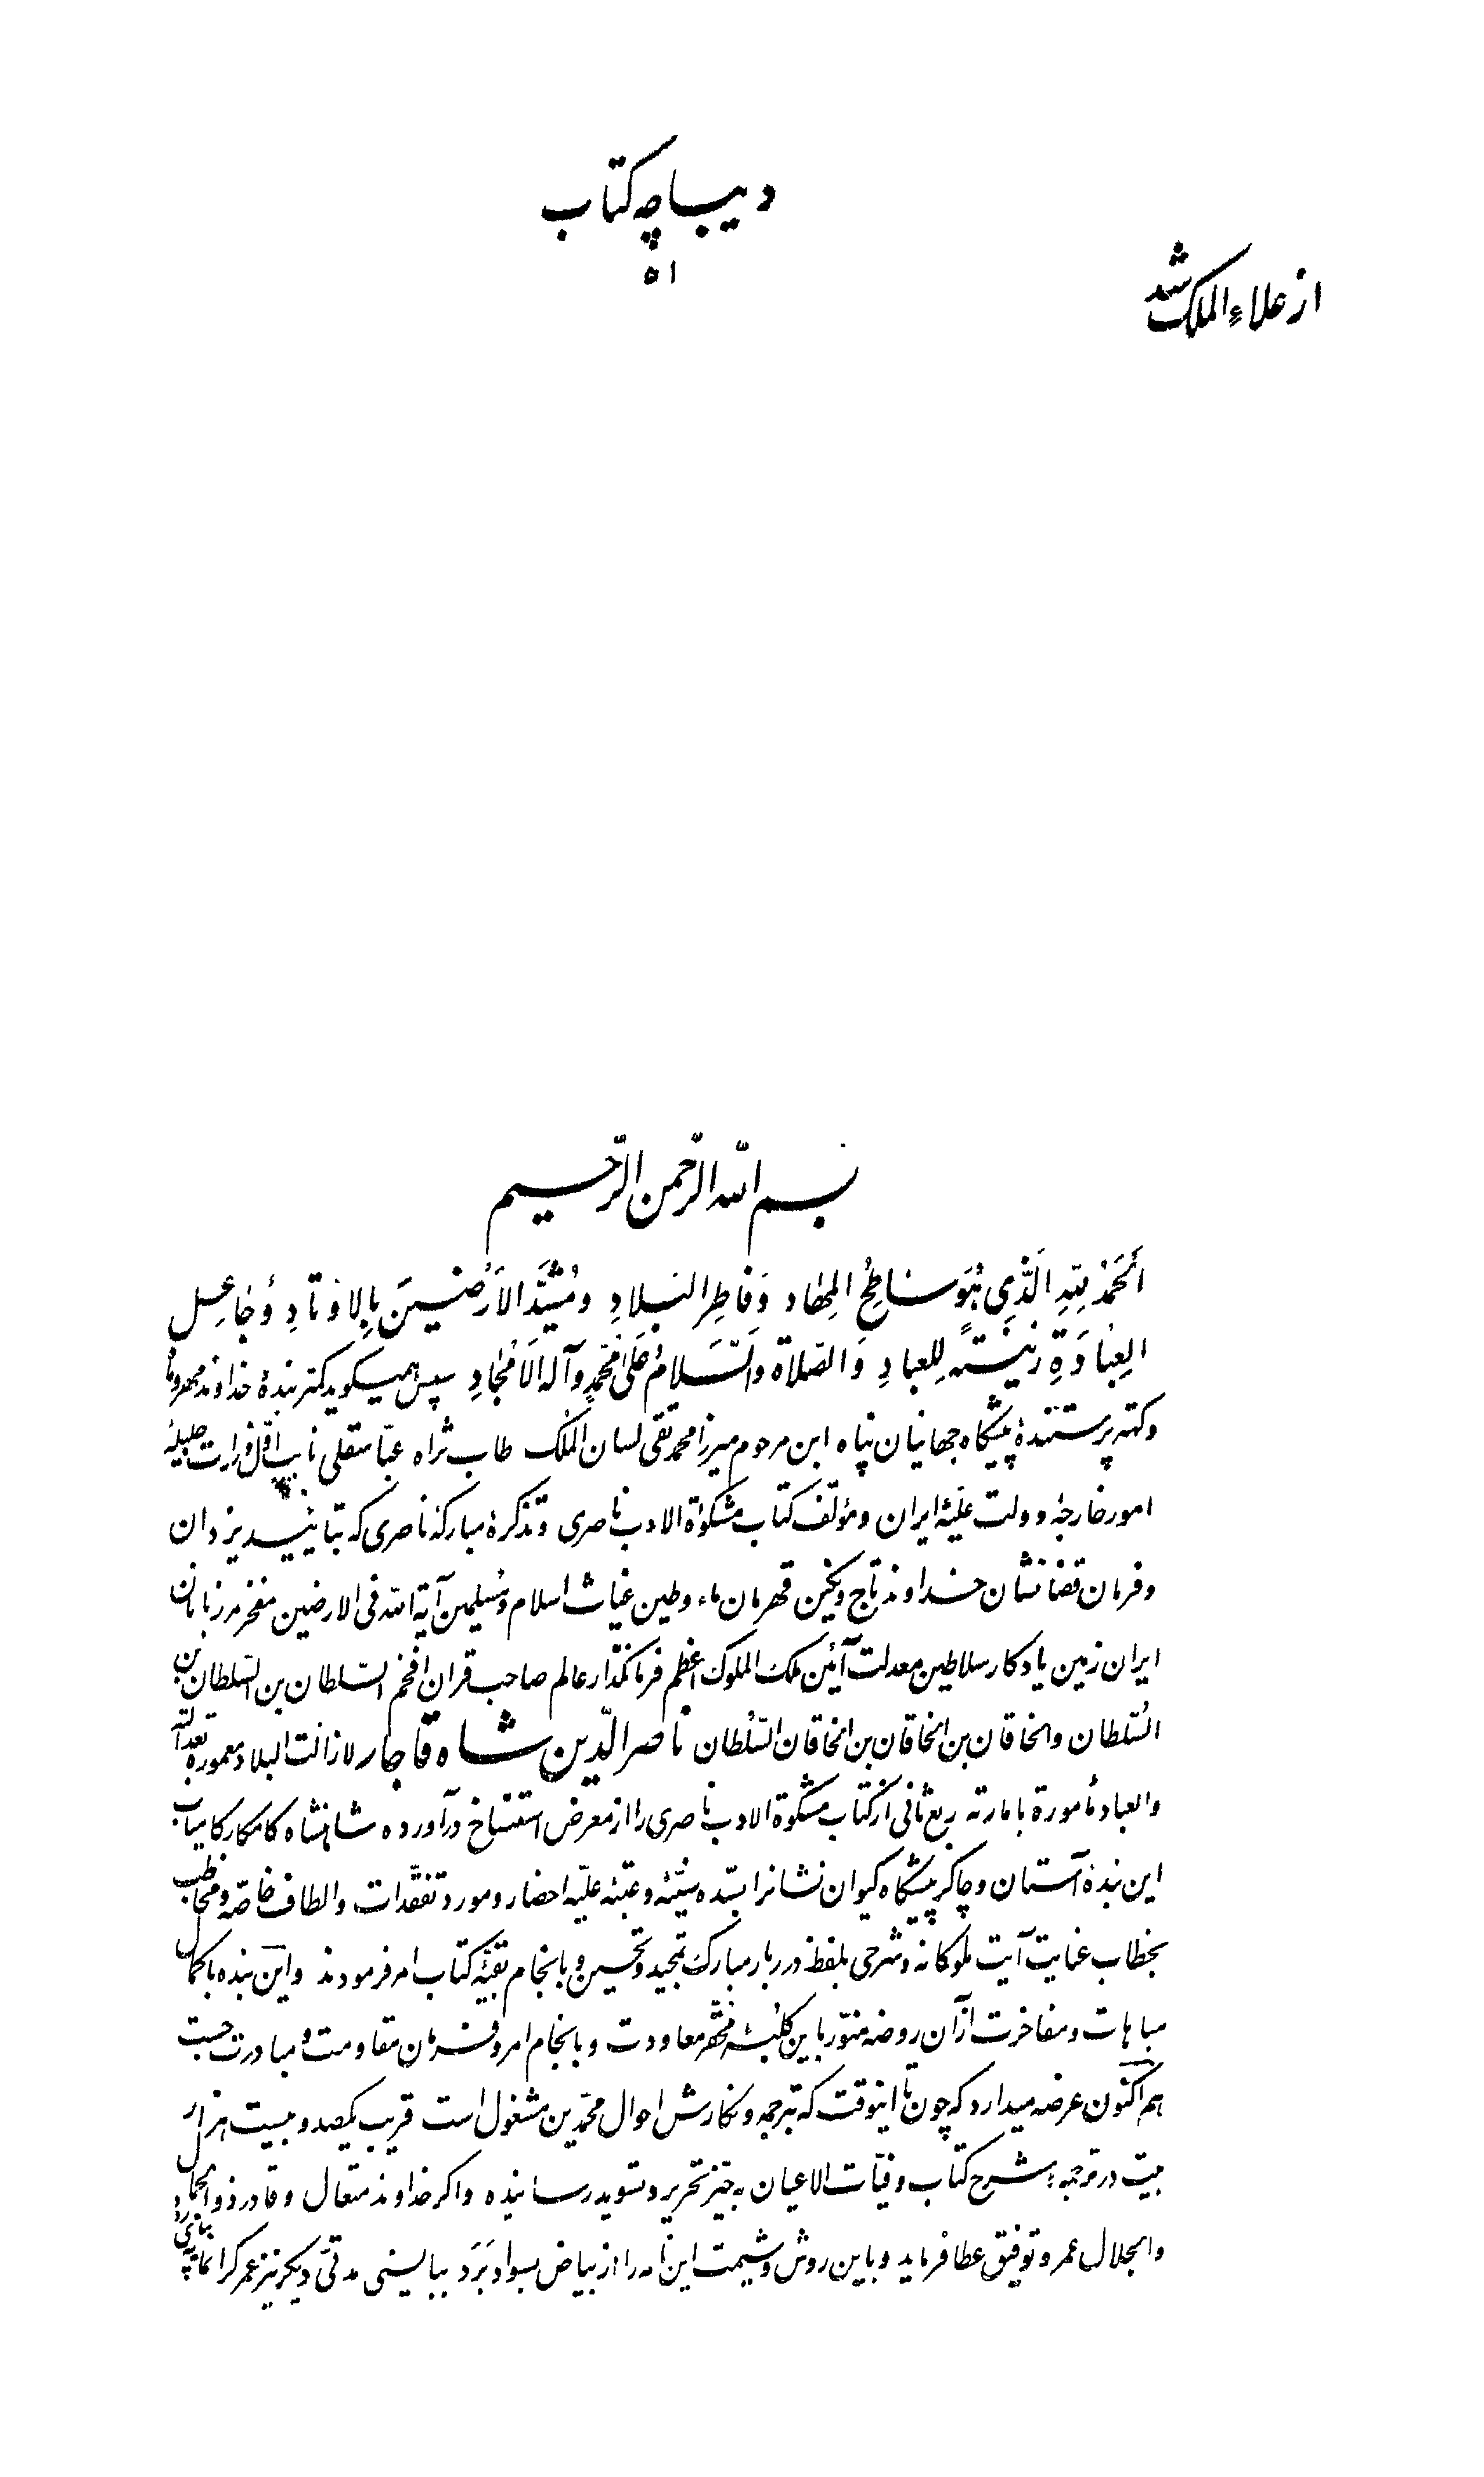 دیباچه کتاب
۵۱
از علاءالملک شد
بسم الله الرّحمن الرّحیم
اَلحَمْدُ لِلّهِ الَّذِی هُوَ سٰاطِحُ المِهٰادِ وَفٰاطِرِ البِلادِ وَمُشَیِّدَ الاَرَضینَ بِالاَوْتٰادِ وَجٰاعِل
العِبٰادَةِ زینَتهً لِلعِبادِ وَالصّلاة والسّلامُ عَلیٰ مُحَمَّدٍ وَآلهِ الاَمْجٰادِ سپس همیگوید کمتر بندۀ خداوند مهر و ماه
و کمتر پرستندۀ پیشگاه جهانیان پناه ابن مرحوم میرزا محمد تقی لسان الملک طاب ثراه عبّاسقلی نایب اوّل وزارت جلیلۀ
امور خارجۀ دولت علیّۀ ایران و مؤلّف کتاب مشکوة الادب ناصری و تذکرۀ مبارکۀ ناصری که بتأیید یزدان
و فرمان قضا نشان خداوند تاج و نگین قهرمان ماء و طین غیاث اسلام و مسلمین آیة الله فی الارضین مفخر مرزبانان
ایران زمین یادکار سلاطین معدلت آئین ملک الملوک اعظم فرمانگذار عالم صاحبقران افخم السّلطان بن السّلطان بن
السّلطان والخاقان بن الخاقان بن الخاقان السّلطان ناصرالدّین شاه قاجار لازالت البلاد معمورة بعدالته
والعباد مأمورة بامارته ربع ثانی از کتاب مشکوة الادب ناصری را از معرض استنساخ درآورده شاهنشاه کامکار کامیاب
این بندۀ آستان و چاکر پیشگاه کیوان نشانرا بسدّه سنیّه و عتبۀ علیّه احضار و مورد تفقّدات و الطاف خاصّه و مخاطب
بخطاب عنایت آیت ملوکانه و شرحی بلفظ درربار مبارک تمجید و تحسین و بانجام بقیّۀ کتاب امر فرمودند و این بنده با کمال
مباهات و مفاخرت از آن روضه منوّر باین کلبۀ محقّر معاودت و بانجام امر و فرمان مقاومت و مبادرت جست
هم اکنون عرضه میدارد که چون تا اینوقت که بترجمه و نکارش احوال محمّدین مشغول است قریب یکصد و بیست هزار
بیت در ترجمه و شرح کتاب وفیّات الاعیان به حیّز تحریر و تسوید رسانیده و اکر خداوند متعال و قادر ذوالجمال
والجلال عمر و توفیق عطا فرماید و باین روش و شیمت این نامه را از بیاض بسواد بَرَد ببایستی مدتیّ دیکر نیز عمر کرانمایه